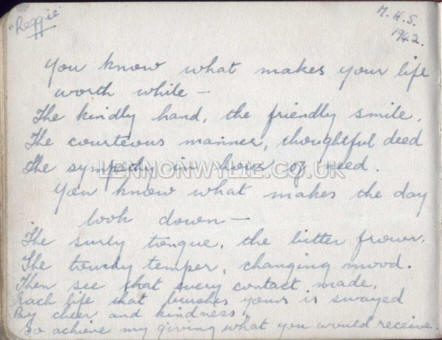 "Reggie"
M. H. S.
1942.
You know what makes your life
worth while —
The kindly hand, the friendly smile,
The courteous manner, thoughtful deed
The sympathy in hour of need.
LENNONWYLIE.CO.UK
You know what makes the day
look down —
The surly tongue, the bitter frown,
The touchy temper, changing mood.
Then see that every contact made,
Each life that touches yours is swayed
By cheer and kindness,
So achieve my giving what you would receive.